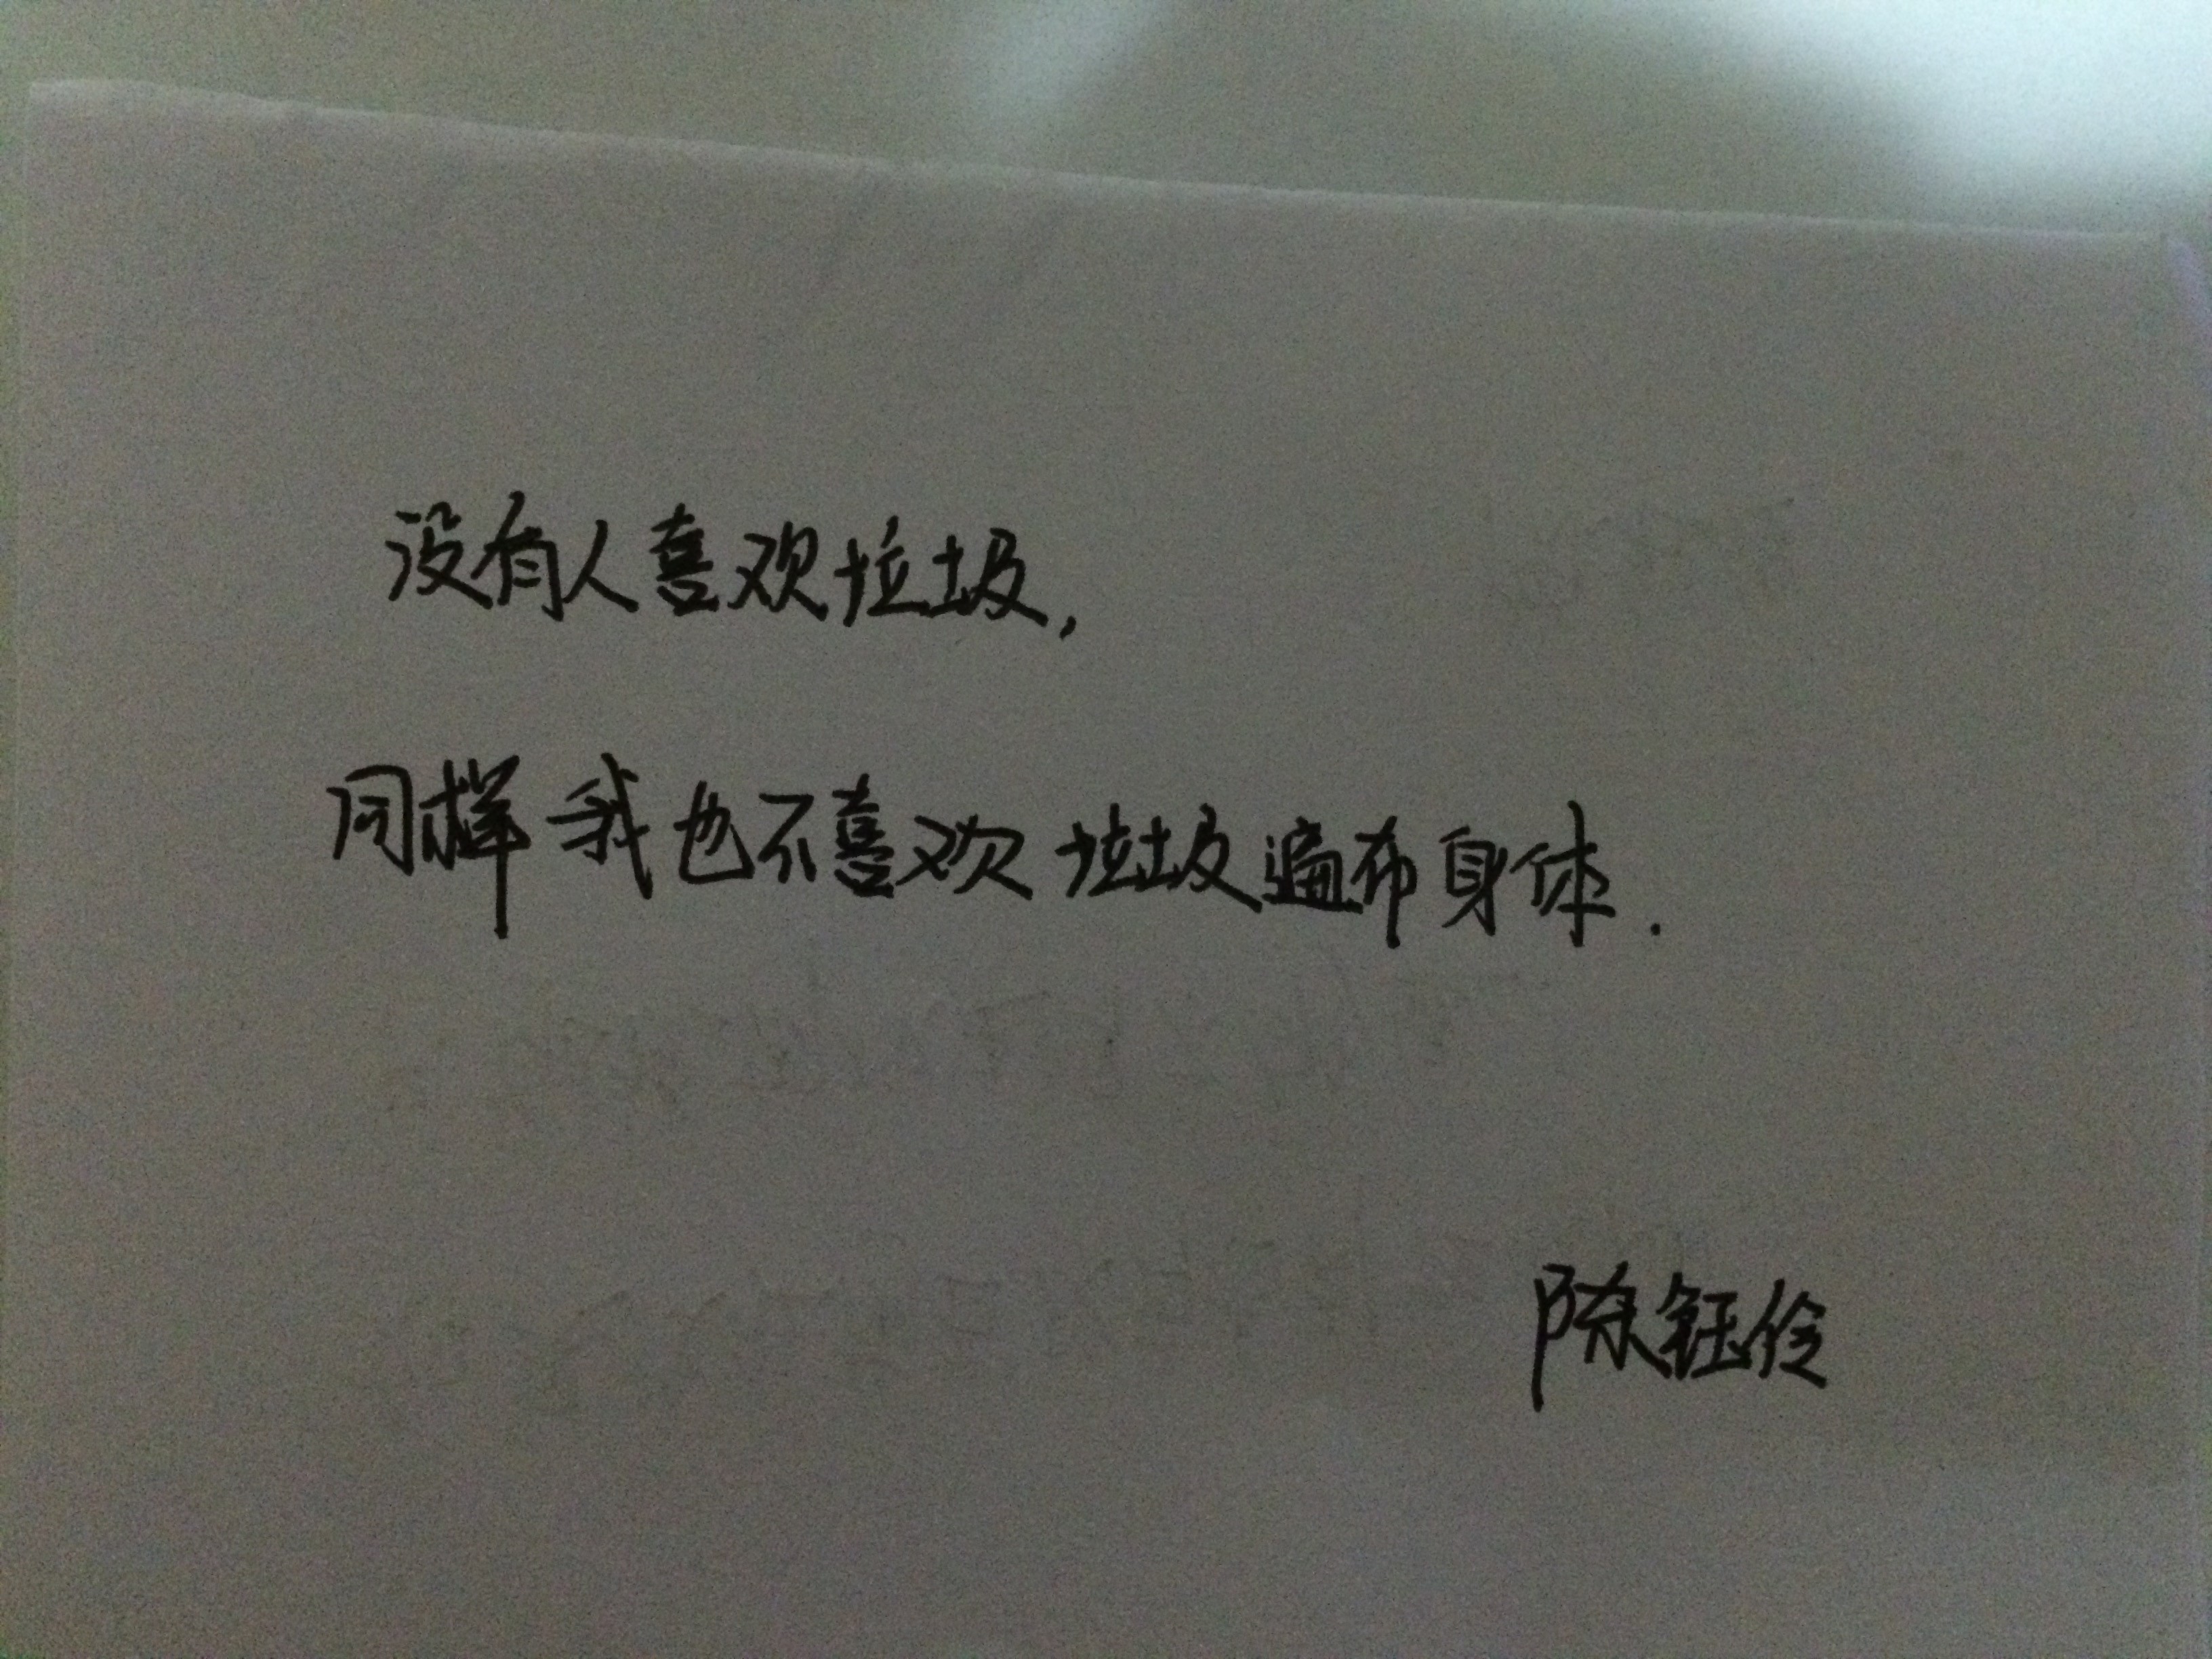 没有人喜欢垃圾,
同样我也不喜欢垃圾遍布身体.
陈钰伶